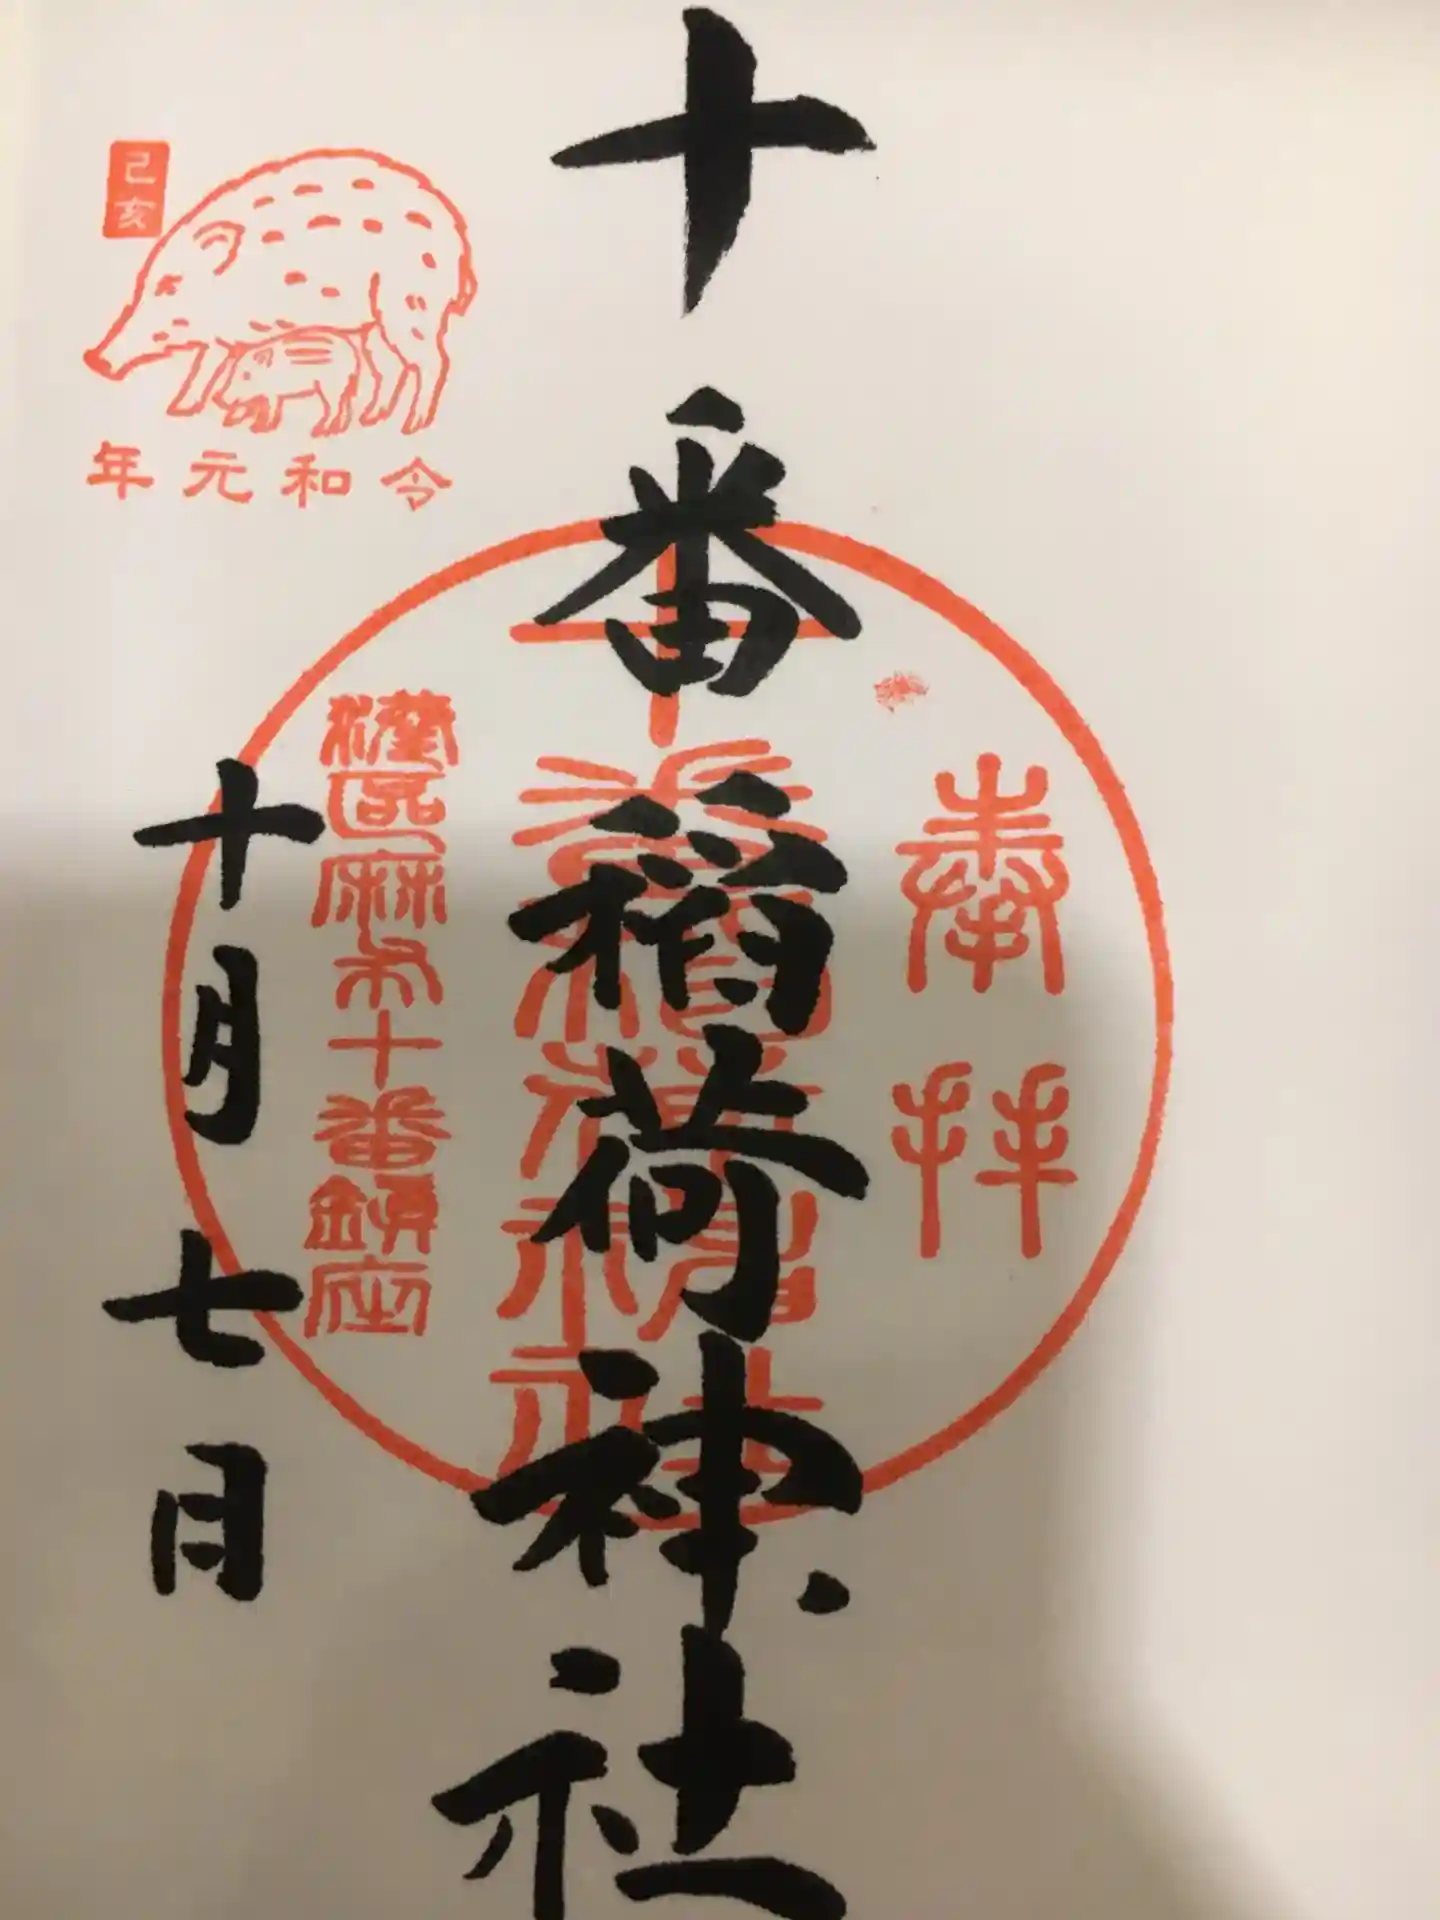 奉拝
十番稲荷神社
十番稲荷神社
港区麻布十番鎮座
十月七日
己亥
令和元年